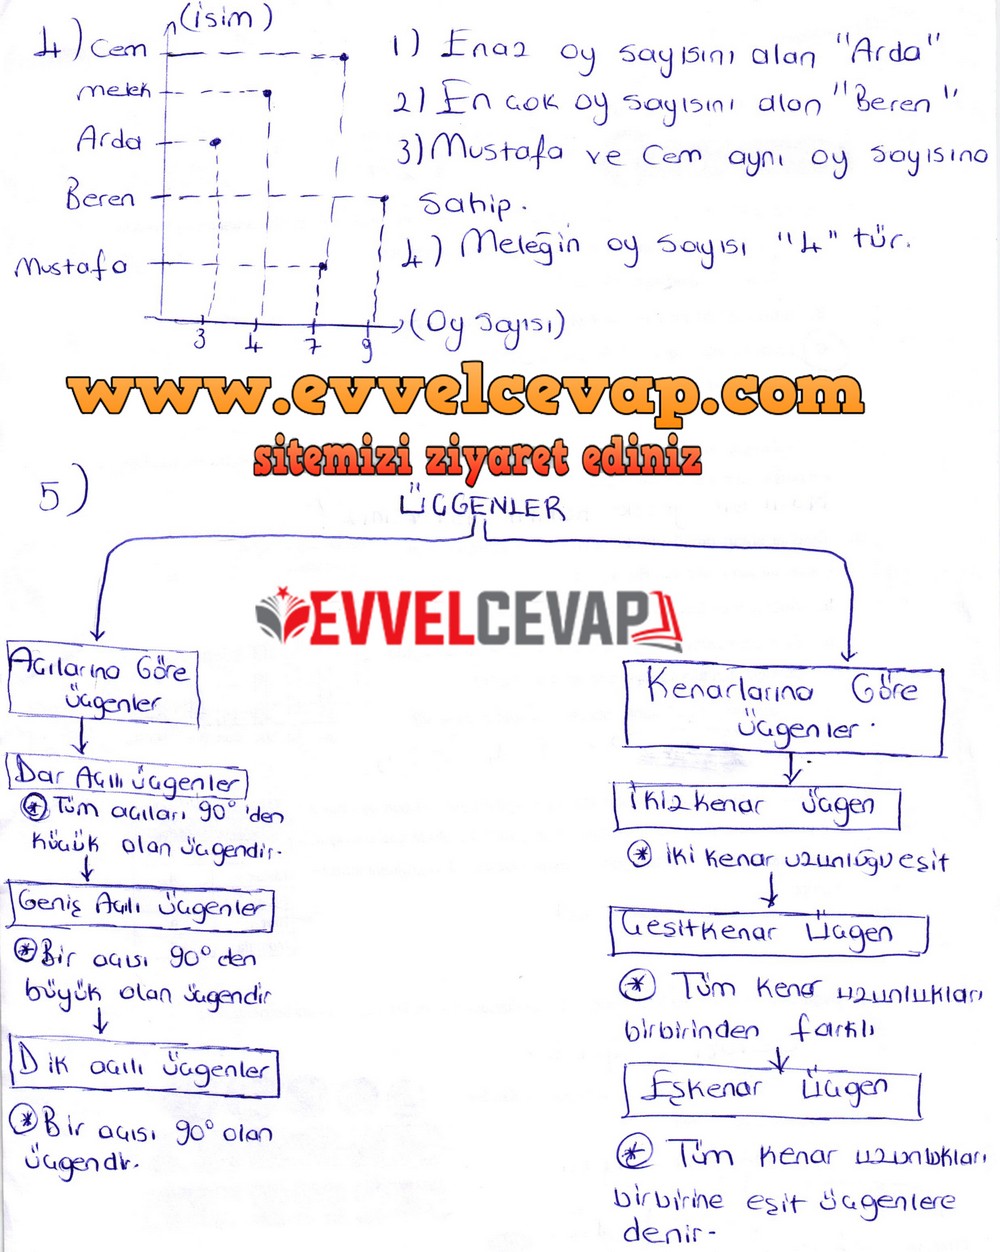 4)
(isim)
Cem
Melek
Arda
Beren
Mustafa
3 4 7 9
(Oy Sayısı)
1) En az oy sayısını alan "Arda"
2) En çok oy sayısını alan "Beren"
3) Mustafa ve Cem aynı oy sayısına
sahip.
4) Meleğin oy sayısı "4" tür.
www.evvelcevap.com
sitemizi ziyaret ediniz
5)
ÜÇGENLER
EVVELCEVAP
Açılarına Göre
üçgenler
Dar Açılı üçgenler
* Tüm açıları 90°'den
küçük olan üçgendir.
Geniş Açılı üçgenler
* Bir açısı 90° den
büyük olan üçgendir
Dik açılı üçgenler
* Bir açısı 90° olan
üçgendir.
Kenarlarına Göre
üçgenler.
İkizkenar üçgen
* iki kenar uzunluğu eşit
Çeşitkenar Üçgen
* Tüm kenar uzunlukları
birbirinden farklı
Eşkenar Üçgen
* Tüm kenar uzunlukları
birbirine eşit üçgenlere
denir.